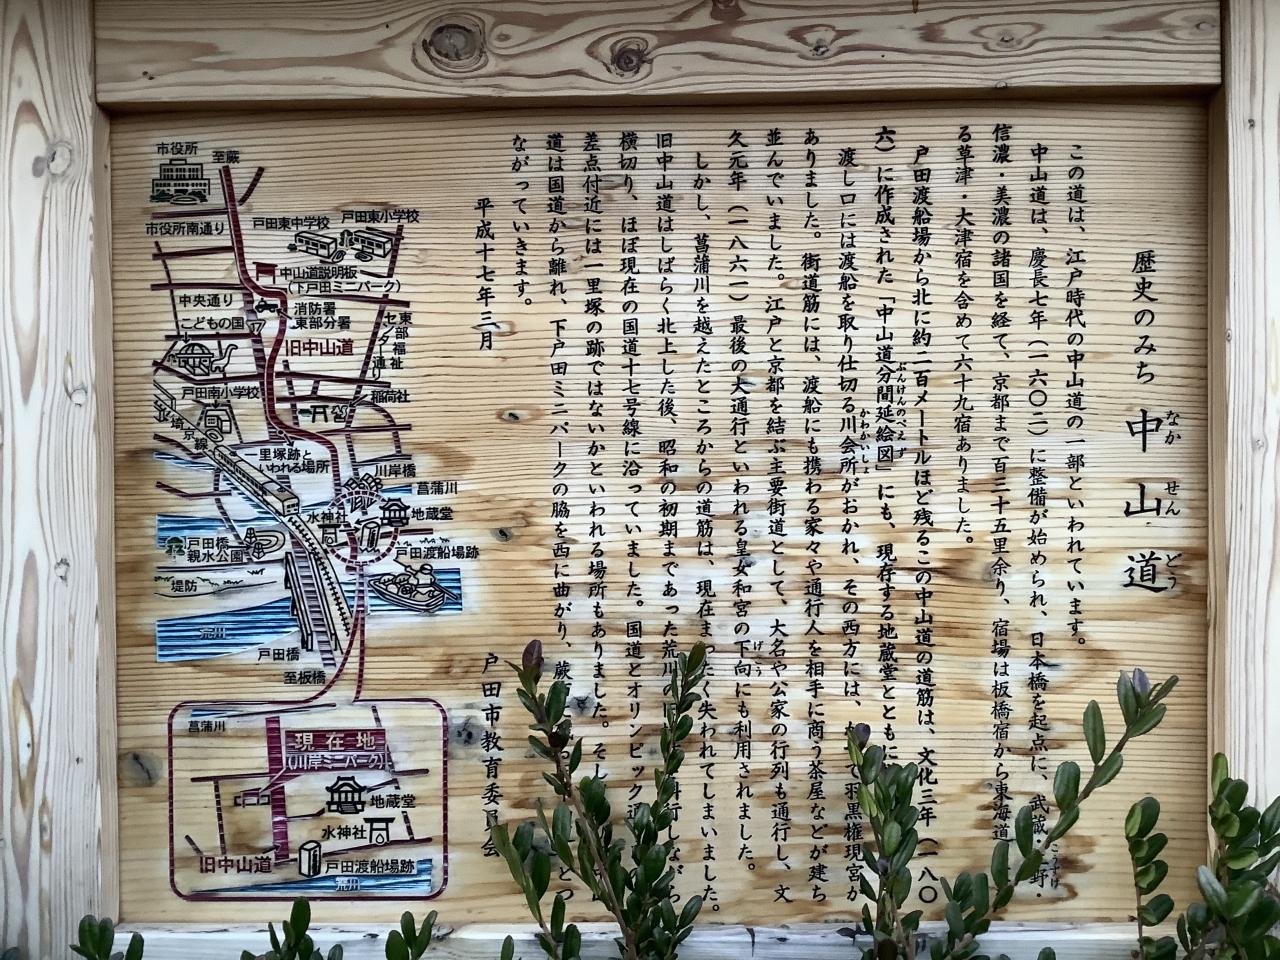 歴史のみち 中山道
なか せん どう
この道は、江戸時代の中山道の一部といわれています。
中山道は、慶長七年（一六〇二）に整備が始められ、日本橋を起点に、武蔵・上野・
こうずけ
信濃・美濃の諸国を経て、京都まで百三十五里余り、宿場は板橋宿から東海道
る草津・大津宿を含めて六十九宿ありました。
戸田渡船場から北に約二百メートルほど残るこの中山道の道筋は、文化三年（一八〇
六）に作成された「中山道分間延絵図」にも、現存する地蔵堂とともに
ぶんけんのべえず
渡し口には渡船を取り仕切る川会所がおかれ、その西方には、 羽黒権現宮が
かわかいしょ
ありました。街道筋には、渡船にも携わる家々や通行人を相手に商う茶屋などが建ち
並んでいました。江戸と京都を結ぶ主要街道として、大名や公家の行列も通行し、文
久元年（一八六一）最後の大通行といわれる皇女和宮の下向にも利用されました。
げこう
しかし、菖蒲川を越えたところからの道筋は、現在まったく失われてしまいました。
旧中山道はしばらく北上した後、昭和の初期まであった荒川の 斜行しながら
横切り、ほぼ現在の国道十七号線に沿っていました。国道とオリンピック通
差点付近には一里塚の跡ではないかといわれる場所もありました。そし
道は国道から離れ、下戸田ミニパークの脇を西に曲がり、蕨 とつ
ながっていきます。
平成十七年三月
戸田市教育委員会
市役所
至蕨
市役所南通り
戸田東中学校
戸田東小学校
中山道説明板
（下戸田ミニパーク）
中央通り
消防署
東部分署
こどもの国
旧中山道
東部福祉
センター通り
戸田南小学校
稲荷社
埼京線
一里塚跡と
いわれる場所
川岸橋
菖蒲川
水神社
地蔵堂
戸田橋
親水公園
戸田渡船場跡
堤防
荒川
戸田橋
至板橋
菖蒲川
現在地
（川岸ミニパーク）
地蔵堂
水神社
旧中山道
戸田渡船場跡
荒川